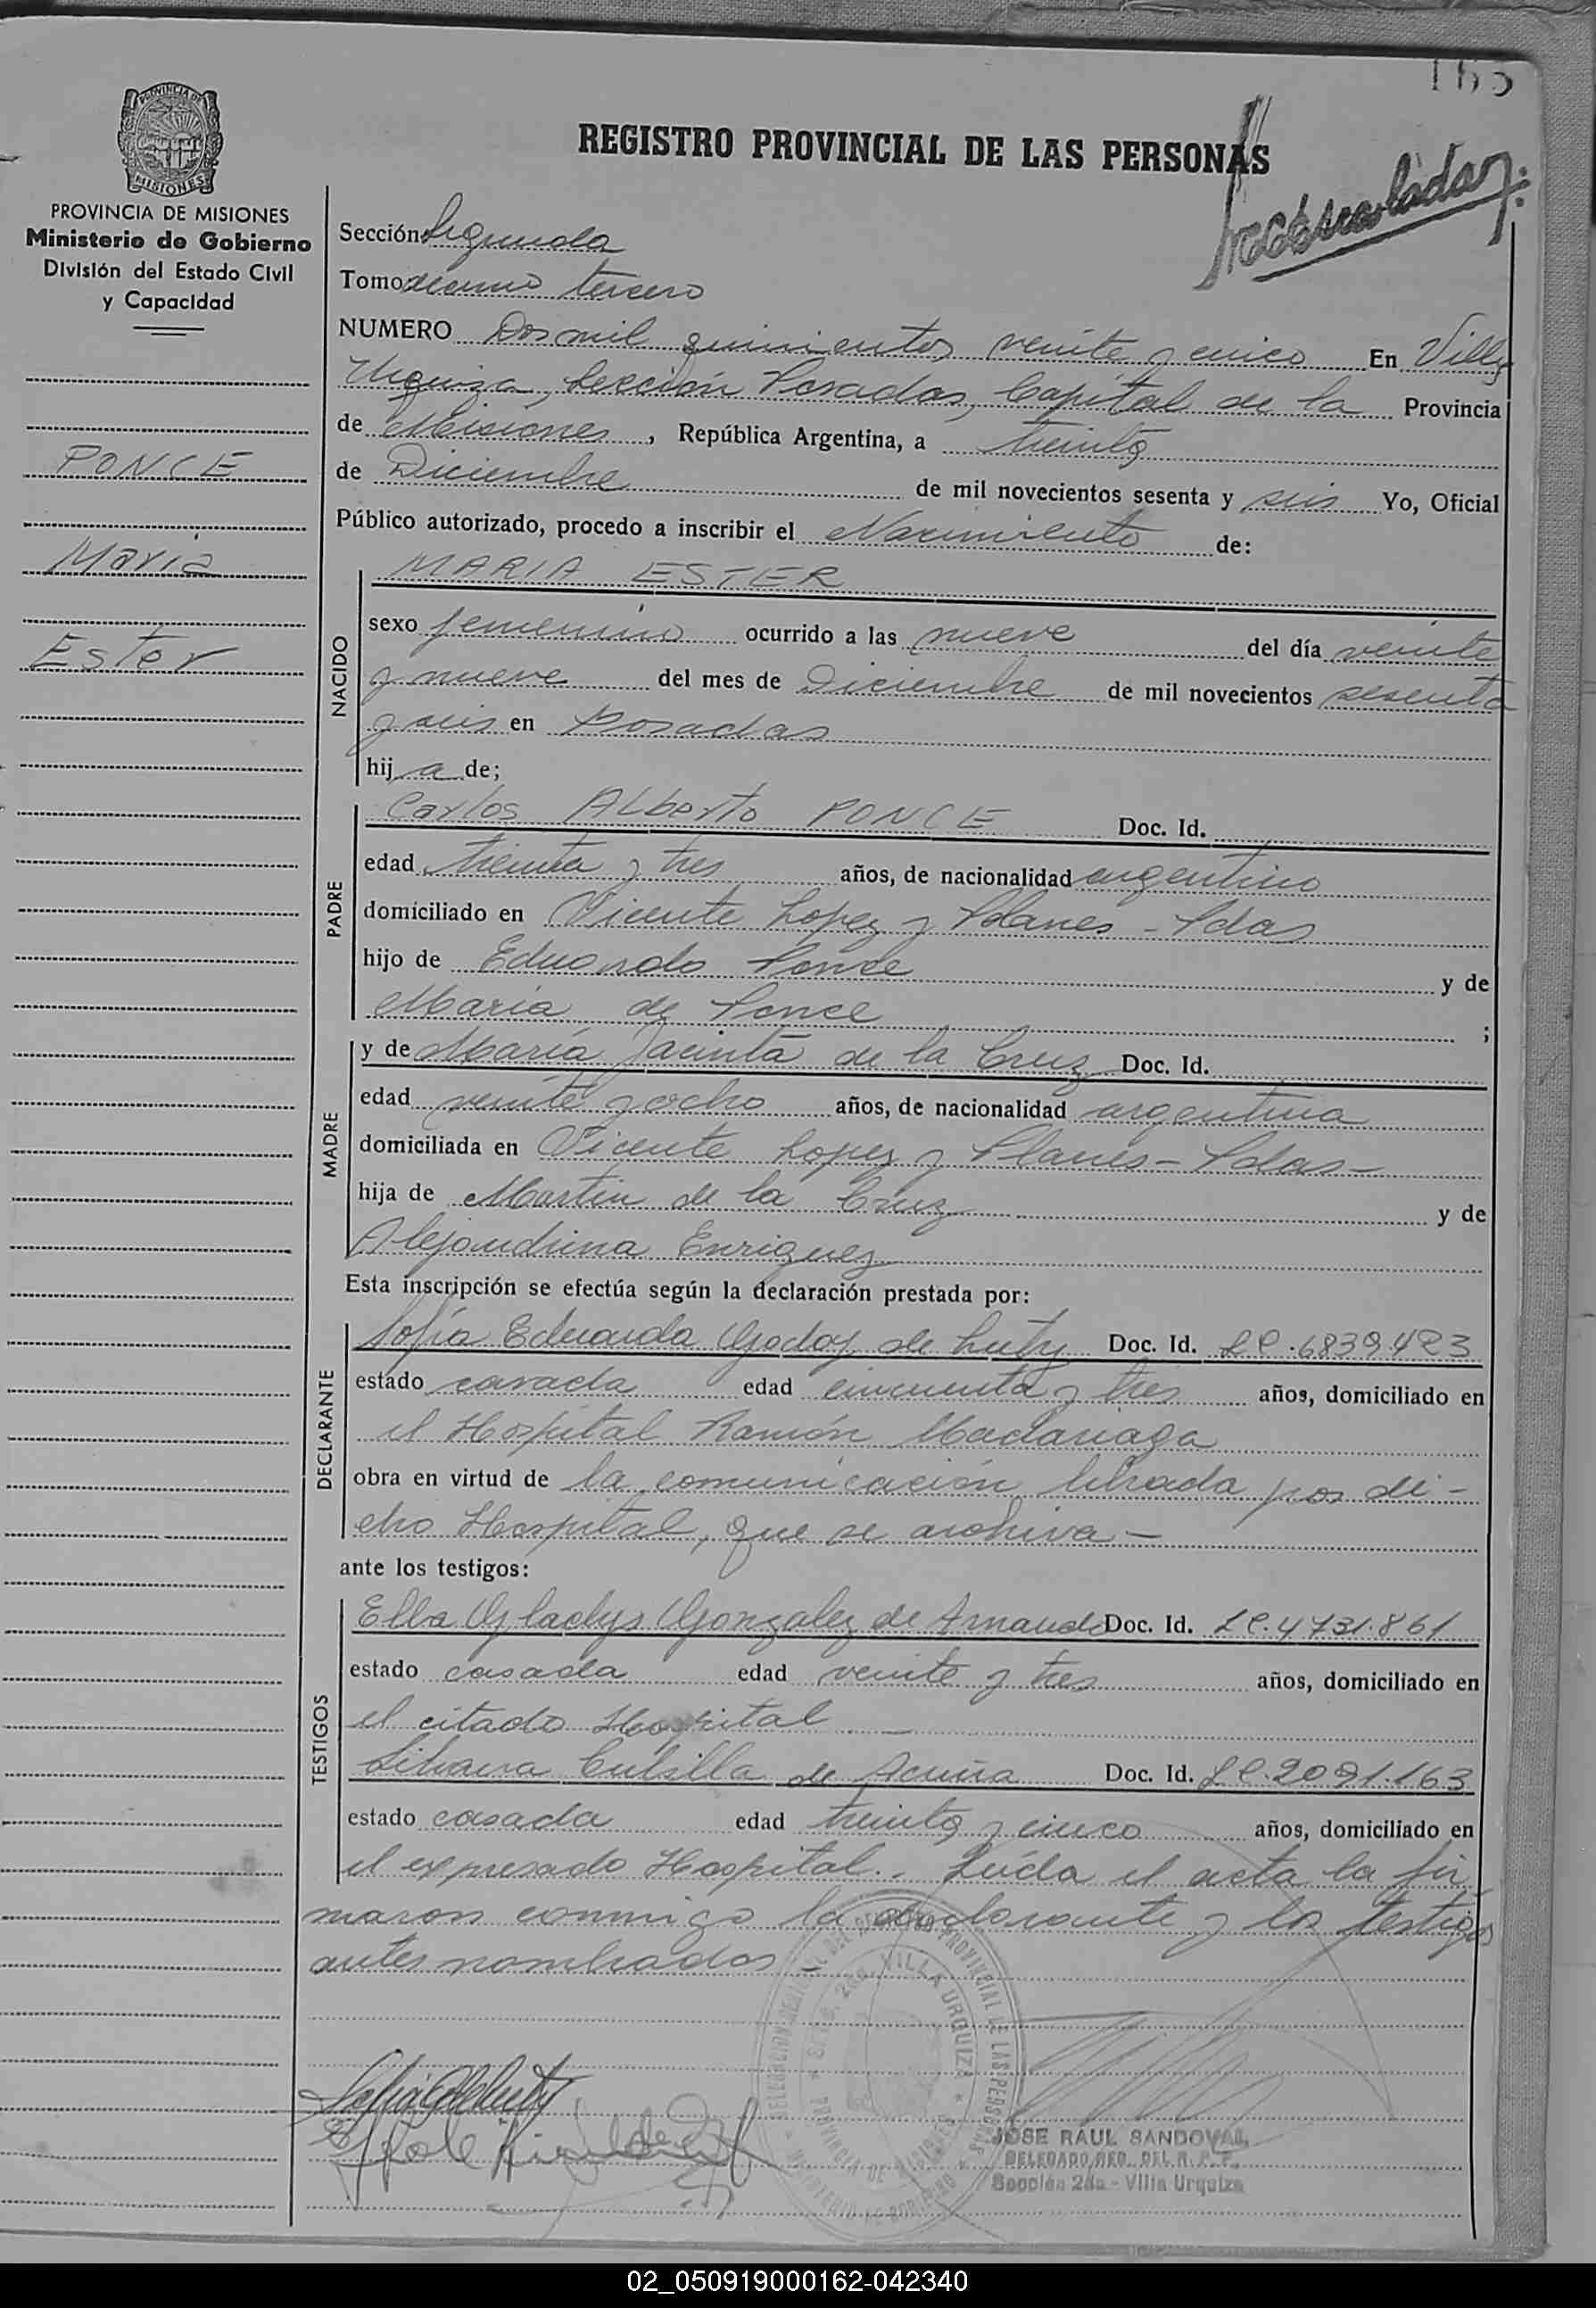 165
PROVINCIA DE MISIONES
PROVINCIA DE MISIONES
Ministerio de Gobierno
División del Estado Civil
y Capacidad
PONCE
Maria
Ester
REGISTRO PROVINCIAL DE LAS PERSONAS
Sección Segunda
Tomo decimo tercero
NUMERO Dos mil quinientos veinte y cinco En Villa
Urquiza, Sección Posadas, Capital de la Provincia
de Misiones, República Argentina, a treinta
de Diciembre de mil novecientos sesenta y seis Yo, Oficial
Público autorizado, procedo a inscribir el Nacimiento de:
NACIDO
MARIA ESTER
sexo femenino ocurrido a las nueve del día veinte
y nueve del mes de Diciembre de mil novecientos sesenta
y seis en Posadas
hij a de;
PADRE
Carlos Alberto PONCE Doc. Id.
edad treinta y tres años, de nacionalidad argentino
domiciliado en Vicente Lopez y Planes - Pdas
hijo de Eduardo Ponce y de
Maria de Ponce ;
MADRE
y de María Jacinta de la Cruz Doc. Id.
edad veinte y ocho años, de nacionalidad argentina
domiciliada en Vicente Lopez y Planes - Pdas -
hija de Martin de la Cruz y de
Alejandrina Enriquez
Esta inscripción se efectúa según la declaración prestada por:
DECLARANTE
Sofía Eduarda Godoy de Luty Doc. Id. LC.6839.423
estado casada edad cincuenta y tres años, domiciliado en
el Hospital Ramón Madariaga
obra en virtud de la comunicación librada por di-
cho Hospital, que se archiva -
ante los testigos:
TESTIGOS
Elba Gladys Gonzalez de Arnaud Doc. Id. LC.4731.861
estado casada edad veinte y tres años, domiciliado en
el citado Hospital -
de Acuña Doc. Id. LC.2091.163
estado casada edad treinta y cinco años, domiciliado en
el expresado Hospital. Leída el acta la fir
maron conmigo la declarante y los testigos
antes nombrados -
VILLA URQUIZA
PROVINCIA DE MISIONES
JOSE RAUL SANDOVAL
DELEGADO REG. DEL R. P. P.
Sección 2da - Villa Urquiza
02_050919000162-042340